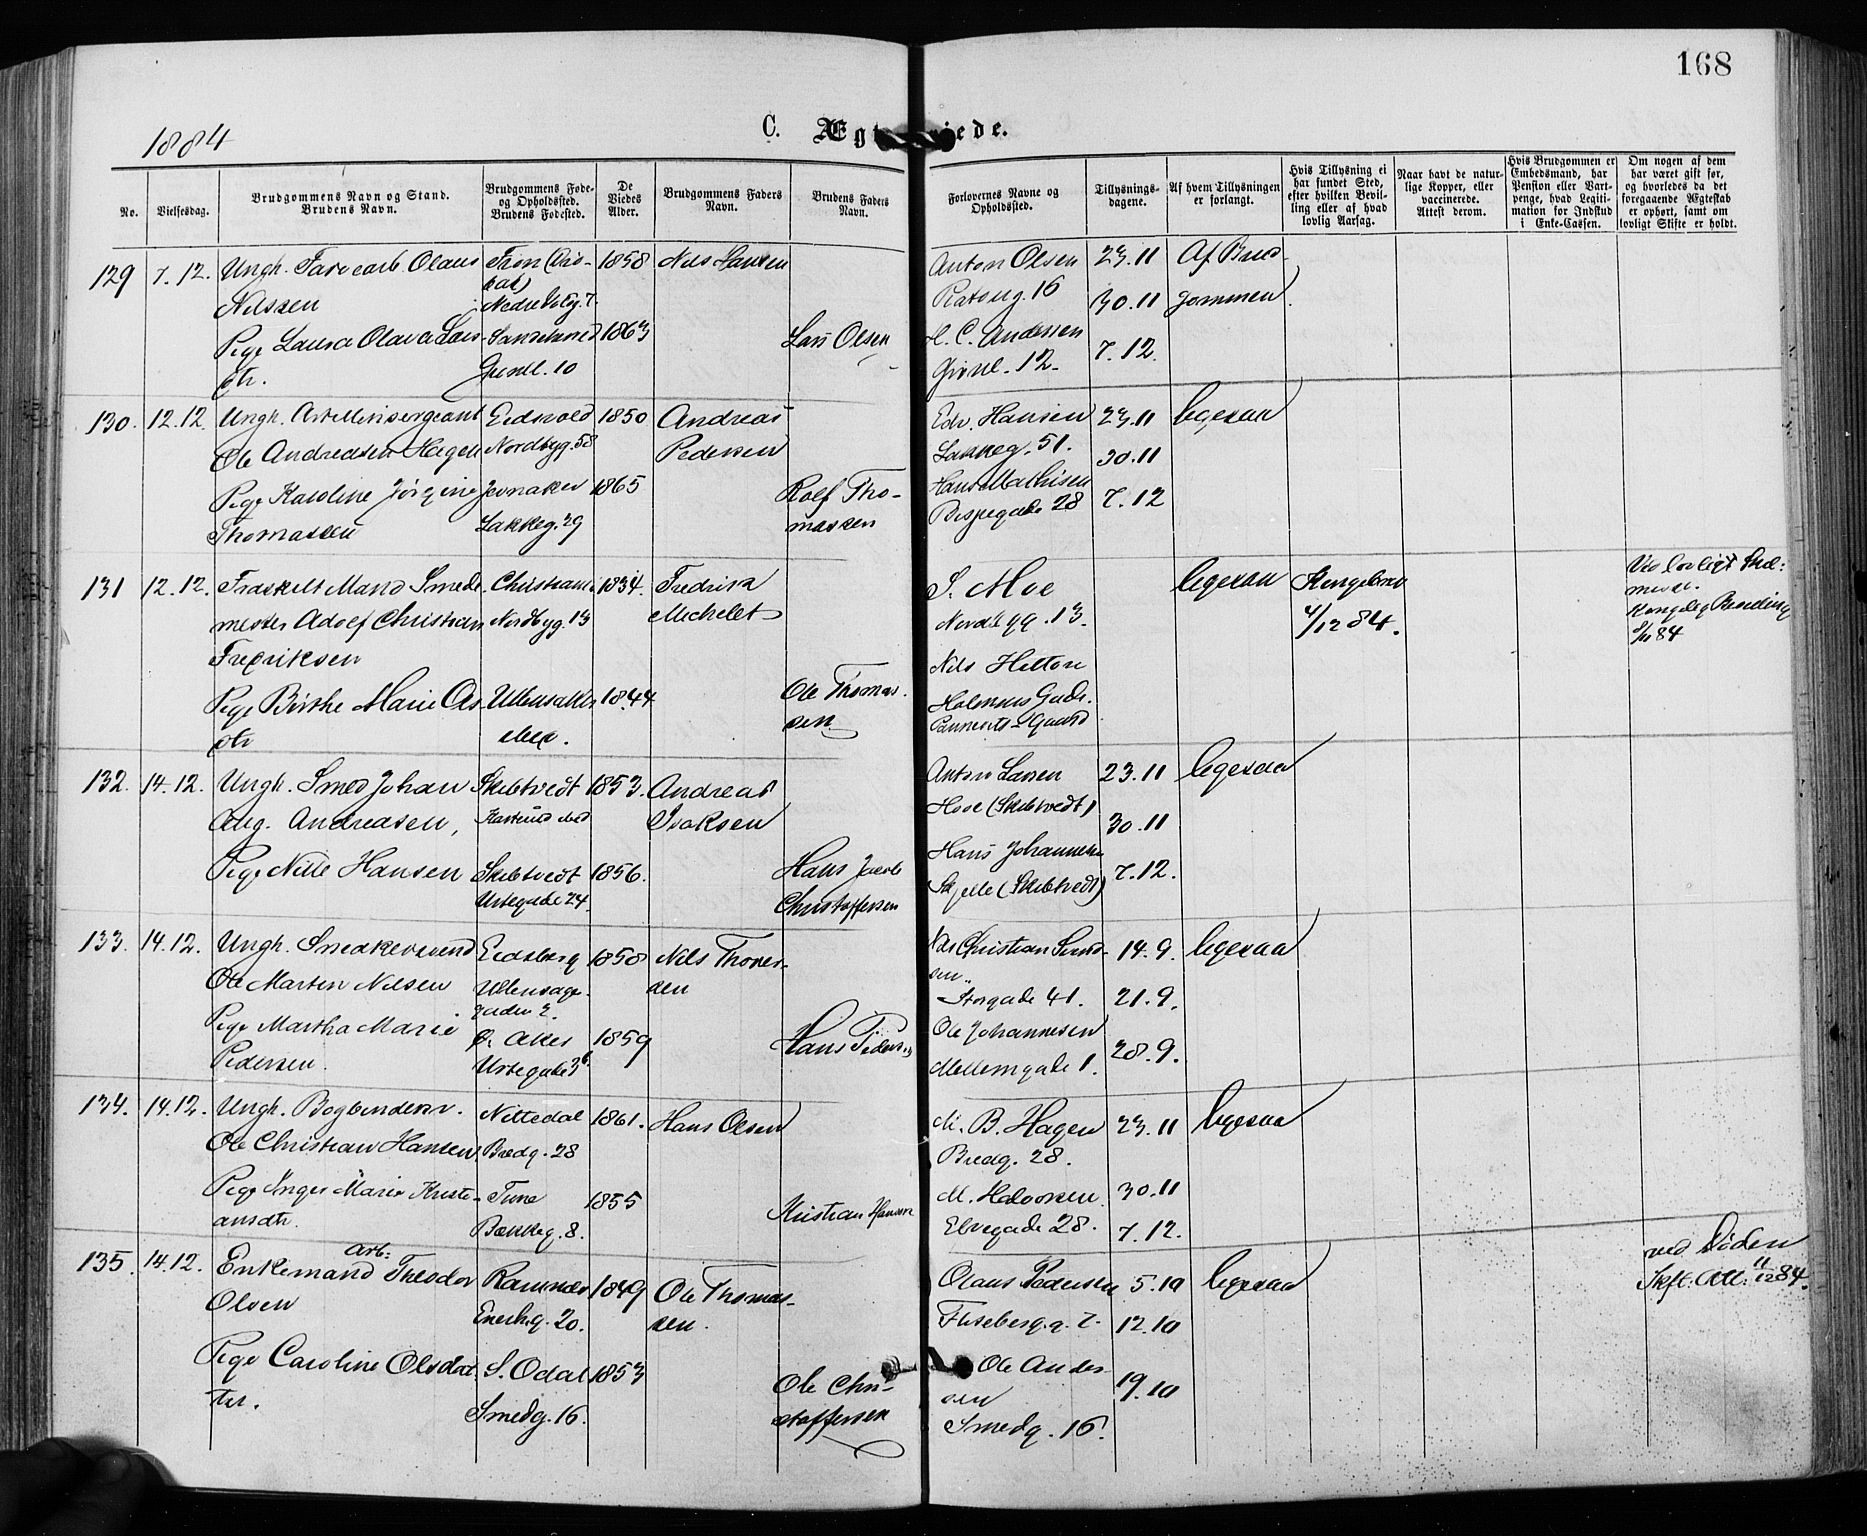 168
1884
C. Ægt iede.
No.
Vielsesdag.
Brudgommens Navn og Stand.
Brudens Navn.
Brudgommens Føde-
og Opholdssted.
Brudens Fødested.
De
Viedes
Alder.
Brudgommens Faders
Navn.
Brudens Faders
Navn.
Forlovernes Navne og
Opholdssted.
Tillysnings-
dagene.
Af hvem Tillysningen
er forlangt.
Hvis Tillysning ei
har fundet Sted,
efter hvilken Bevil-
ling eller af hvad
lovlig Aarsag.
Naar havt de natur-
lige Kopper, eller
vaccinerede.
Attest derom.
Hvis Brudgommen er
Embedsmand, har
Pension eller Vart-
penge, hvad Legiti-
mation for Indskud
i Enke-Cassen.
Om nogen af dem
har været gift før,
og hvorledes da det
foregaaende Ægteskab
er ophørt, samt om
lovligt Skifte er holdt.
129 7.12. Ungh. Olaus 1858 Nils Hansen
Nilssen
Pige Laura Olava Lars- 1863 Lars Olsen
dtr. Grønl. 10
Anton Olsen 23.11 Af Brud-
16 30.11 gommen.
H. C. Andersen
Grønl. 12. 7.12.
130. 12.12. Ungh. Artillerisergeant Eidsvold 1850 Andreas
Ole Andreasen Hagen Nordbyg. 58 Pedersen
Pige Karoline Jørgine Jevnaker 1865 Rolf Tho-
Thomassen Lakkeg. 29 massen
Edv. Hansen 23.11 ligesaa
Lakkeg. 51. 30.11
Hans Mathisen
Bispegade 28 7.12
131 12.12. Fraskilt Mand Smede- Christiania 1834. Fredrik
mester Adolf Christian Nordbyg. 13 Michelet
Fredriksen
Pige Birthe Marie Ols- Ullensaker 1844 Ole Thomas-
dtr sen.
S. Moe ligesaa Kongebrev
Nordbygg. 13. 4/12 84.
Nils
Gade.
Gaard
Ved lovligt Skil-
misse.
Kongelig Bevilling
84
132. 14.12. Ungh. Smed Johan Skibtvedt 1853. Andreas
Aug. Andreasen, Isaksen
Pige Nille Hansen Skibtvedt 1856. Hans Jacob
Urtegade 24. Christoffersen
Anton Larsen 23.11 ligesaa
(Skibtvedt) 30.11
Hans Johannesen
(Skibtvedt) 7.12.
133. 14.12. Ungh. Snedkersvend Eidsberg 1858 Nils Thores-
Ole Martin Nilsen Ullensage- sen
gaden 2.
Pige Martha Marie Ø. Aker 1859 Hans Pedersen
Pedersen. Urtegade 36
Christian Simo- 14.9. ligesaa
sen..
Storgade 41. 21.9.
Ole Johannesen
Mellemgade 1. 28.9.
134. 14.12. Ungh. Bogbindersv. Nittedal 1861. Hans Olsen
Ole Christian Hansen Bredg. 28
Pige Inger Marie Kristi- Tune 1855 Kristian Hansen
ansdtr. Bakkeg. 8.
M. B. Hagen 23.11 ligesaa
Bredg. 28.
M. Halvorsen 30.11
Elvegade 28. 7.12.
135. 14.12. Enkemand Arb: Theodor Ramnæs 1849 Ole Thomas-
Olsen Enerh.g. 20. sen.
Pige Caroline Olsdat- S. Odal 1853 Ole Chri-
ter. Smedg. 16. stoffersen
Olaus Pedersen 5.10 ligesaa
Fliseberg.g. 7. 12.10
Ole Ander-
sen 19.10
Smedg. 16.
ved Døden
Skft. Att. 11/12 84.